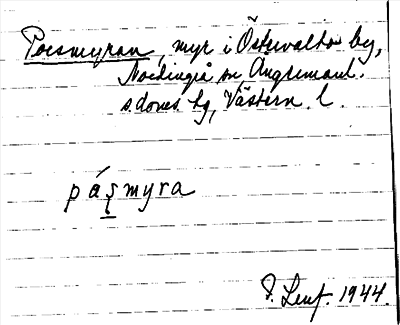 Porsmyran, myr i Östervalto by,
Nordingrå sn, Ångermanl.
s domes hg, Västern. l.
pá̱s̨myra
P. Lenf. 1944.